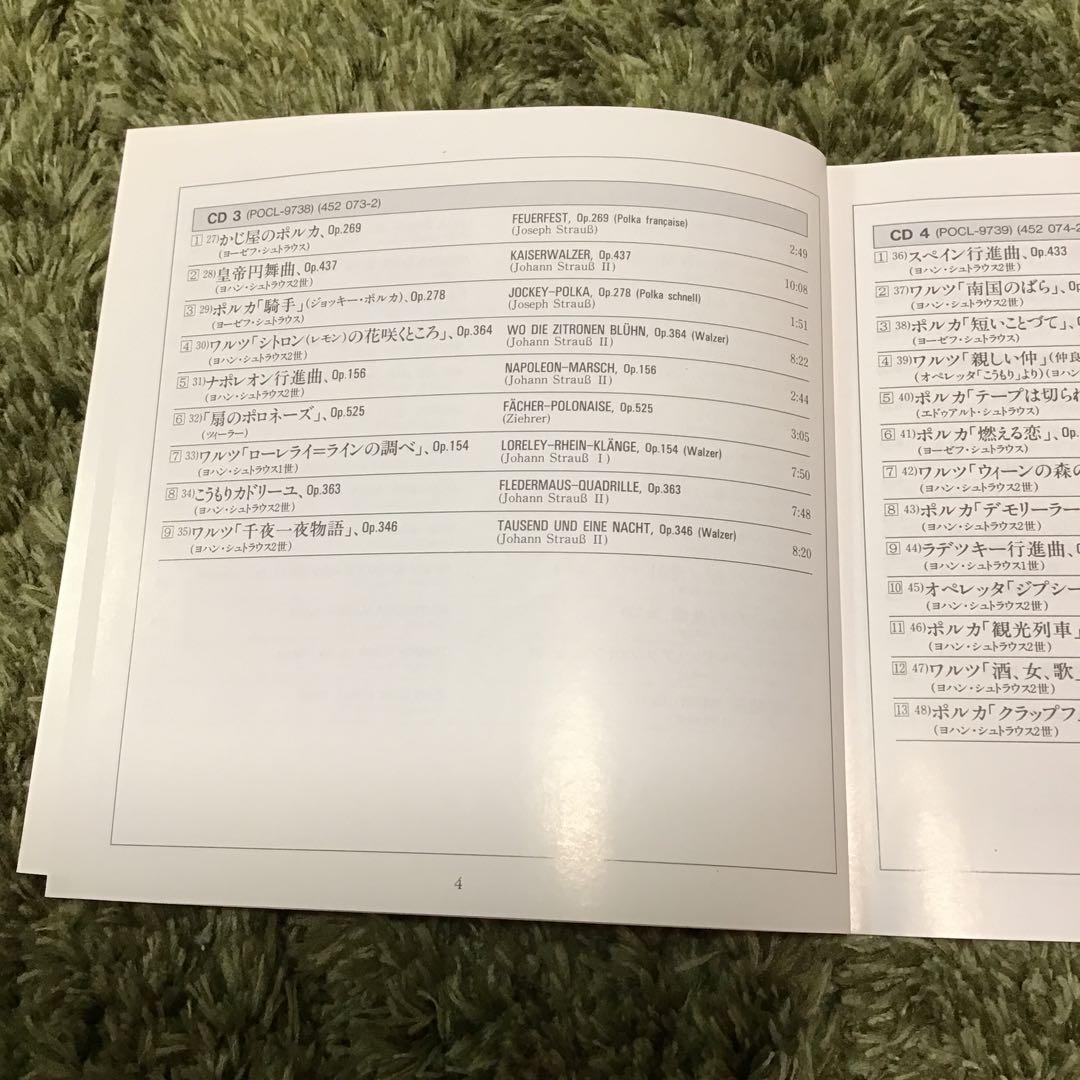 CD 3 (POCL-9738) (452 073-2)
1 27)かじ屋のポルカ、Op.269 FEUERFEST, Op.269 (Polka française)
(ヨーゼフ・シュトラウス) (Joseph Strauß) 2:49
2 28)皇帝円舞曲、Op.437 KAISERWALZER, Op.437
(ヨハン・シュトラウス2世) (Johann Strauß II) 10:08
3 29)ポルカ「騎手」(ジョッキー・ポルカ)、Op.278 JOCKEY–POLKA, Op.278 (Polka schnell)
(ヨーゼフ・シュトラウス) (Joseph Strauß) 1:51
4 30)ワルツ「シトロン(レモン)の花咲くところ」、Op.364 WO DIE ZITRONEN BLÜHN, Op.364 (Walzer)
(ヨハン・シュトラウス2世) (Johann Strauß II) 8:22
5 31)ナポレオン行進曲、Op.156 NAPOLEON–MARSCH, Op.156
(ヨハン・シュトラウス2世) (Johann Strauß II) 2:44
6 32)「扇のポロネーズ」、Op.525 FÄCHER–POLONAISE, Op.525
(ツィーラー) (Ziehrer) 3:05
7 33)ワルツ「ローレライ=ラインの調べ」、Op.154 LORELEY–RHEIN–KLÄNGE, Op.154 (Walzer)
(ヨハン・シュトラウス1世) (Johann Strauß I) 7:50
8 34)こうもりカドリーユ、Op.363 FLEDERMAUS–QUADRILLE, Op.363
(ヨハン・シュトラウス2世) (Johann Strauß II) 7:48
9 35)ワルツ「千夜一夜物語」、Op.346 TAUSEND UND EINE NACHT, Op.346 (Walzer)
(ヨハン・シュトラウス2世) (Johann Strauß II) 8:20
4
CD 4 (POCL-9739) (452 074-2
1 36)スペイン行進曲、Op.433
(ヨハン・シュトラウス2世)
2 37)ワルツ「南国のばら」、Op.
(ヨハン・シュトラウス2世)
3 38)ポルカ「短いことづて」、
(ヨーゼフ・シュトラウス)
4 39)ワルツ「親しい仲」(仲良
(オペレッタ「こうもり」より)(ヨハン
5 40)ポルカ「テープは切られ
(エドゥアルト・シュトラウス)
6 41)ポルカ「燃える恋」、Op.
(ヨーゼフ・シュトラウス)
7 42)ワルツ「ウィーンの森の
(ヨハン・シュトラウス2世)
8 43)ポルカ「デモリーラー
(ヨハン・シュトラウス2世)
9 44)ラデツキー行進曲、
(ヨハン・シュトラウス1世)
10 45)オペレッタ「ジプシー
(ヨハン・シュトラウス2世)
11 46)ポルカ「観光列車」
(ヨハン・シュトラウス2世)
12 47)ワルツ「酒、女、歌」
(ヨハン・シュトラウス2世)
13 48)ポルカ「クラップフ
(ヨハン・シュトラウス2世)